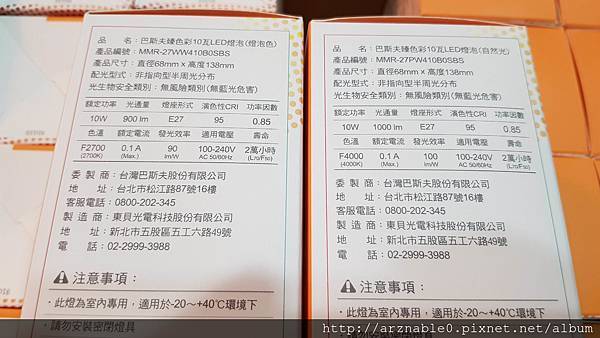 品　　名：巴斯夫臻色彩10瓦LED燈泡(燈泡色)
產品編號：MMR-27WW410B0SBS
產品尺寸：直徑68mm×高度138mm
配光型式：非指向型半周光分布
光生物安全類別：無風險類別(無藍光危害)
額定功率 光通量 燈座形式 演色性CRI 功率因數
10W 900 lm E27 95 0.85
色溫 額定電流 發光效率 適用電壓 壽命
F2700 0.1 A 90 100-240V 2萬小時
(2700K) (Max.) lm/W AC 50/60Hz (L70/F50)
委 製 商：台灣巴斯夫股份有限公司
地　　址：台北市松江路87號16樓
客服電話：0800-202-345
製 造 商：東貝光電科技股份有限公司
地　　址：新北市五股區五工六路49號
電　　話：02-2999-3988
注意事項：
・此燈為室內專用，適用於-20～+40℃環境下
・請勿安裝密閉燈具
品　　名：巴斯夫臻色彩10瓦LED燈泡(自然光)
產品編號：MMR-27PW410B0SBS
產品尺寸：直徑68mm×高度138mm
配光型式：非指向型半周光分布
光生物安全類別：無風險類別(無藍光危害)
額定功率 光通量 燈座形式 演色性CRI 功率因數
10W 1000 lm E27 95 0.85
色溫 額定電流 發光效率 適用電壓 壽命
F4000 0.1 A 100 100-240V 2萬小時
(4000K) (Max.) lm/W AC 50/60Hz (L70/F50)
委 製 商：台灣巴斯夫股份有限公司
地　　址：台北市松江路87號16樓
客服電話：0800-202-345
製 造 商：東貝光電科技股份有限公司
地　　址：新北市五股區五工六路49號
電　　話：02-2999-3988
注意事項：
・此燈為室內專用，適用於-20～+40℃環境下
http://arznable0.pixnet.net/album